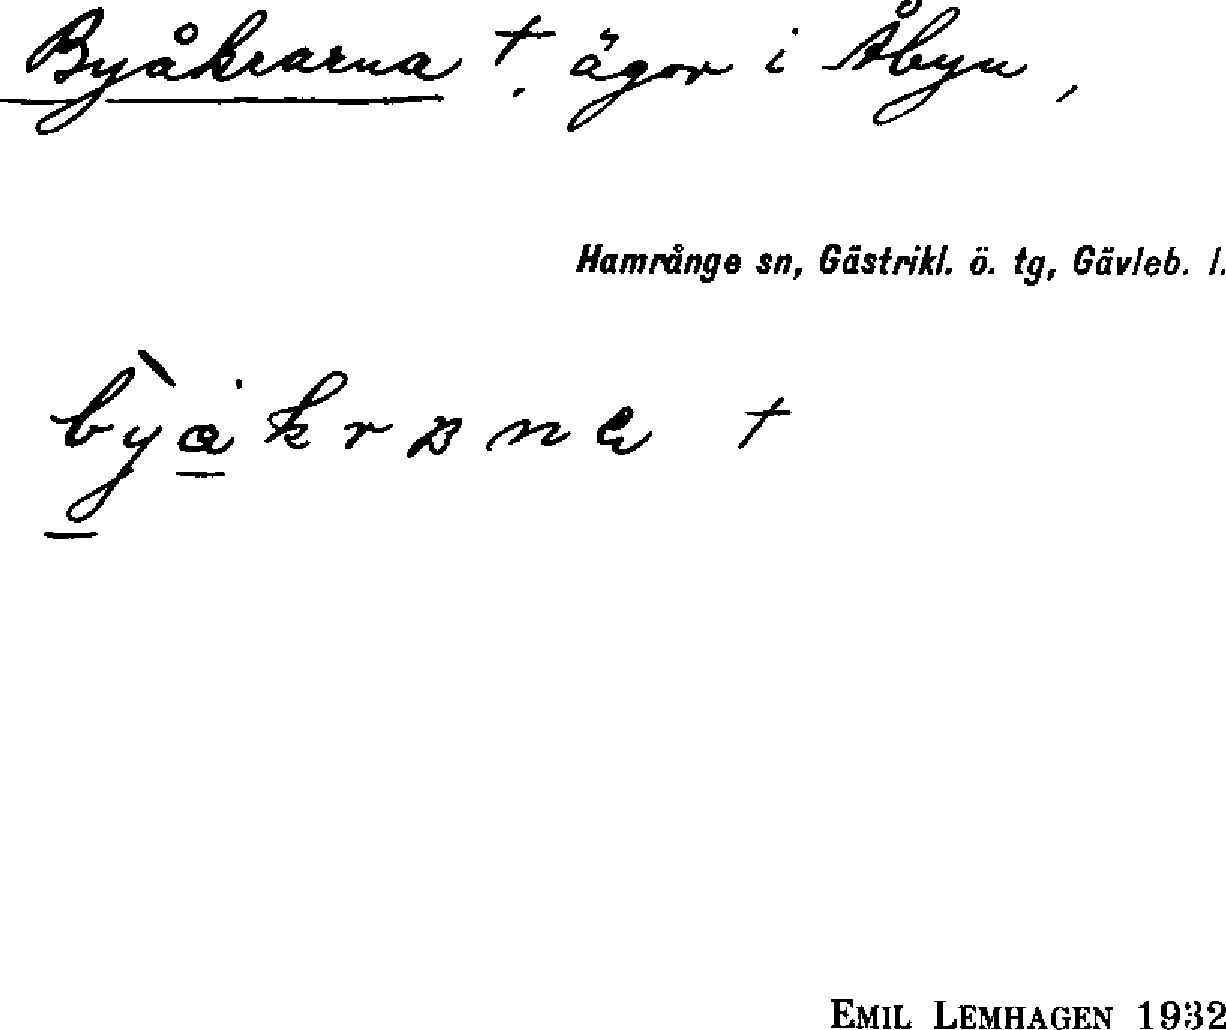 Byåkrarna †. ägor i Åbyn,
Hamrånge sn, Gästrikl. ö. tg, Gävleb. l.
†
EMIL LEMHAGEN 1932